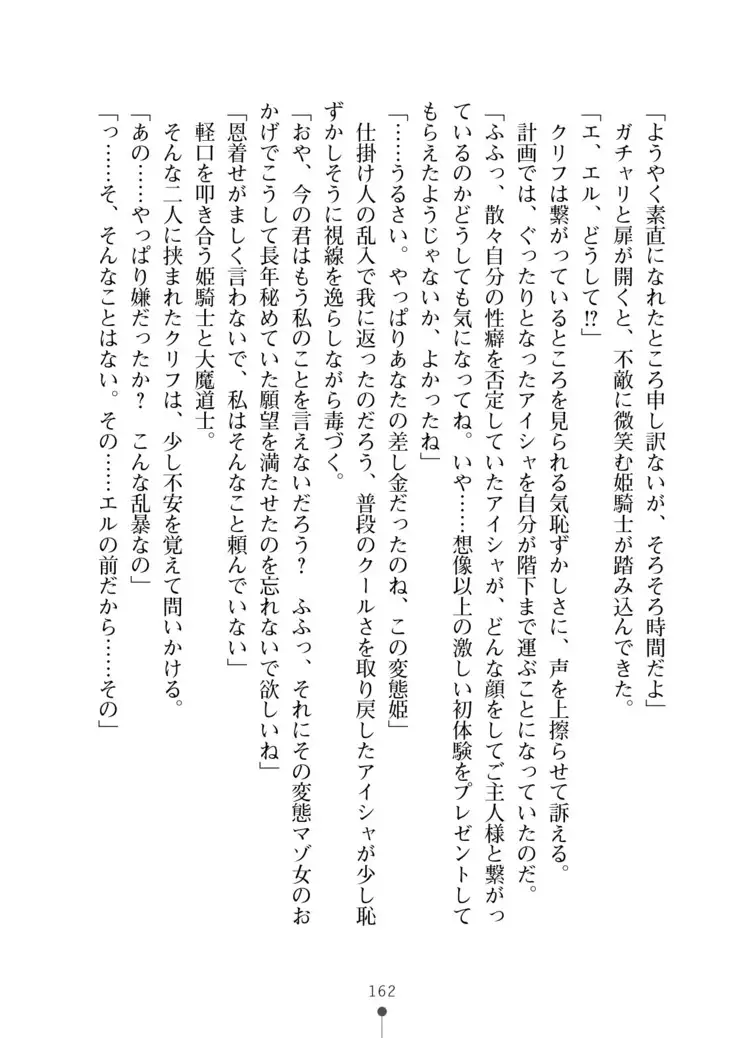 「ようやく素直になれたところ申し訳ないが、そろそろ時間だよ」
ガチャリと扉が開くと、不敵に微笑む姫騎士が踏み込んできた。
「エ、エル、どうして!?」
クリフは繋がっているところを見られる気恥ずかしさに、声を上擦らせて訴える。
計画では、ぐったりとなったアイシャを自分が階下まで運ぶことになっていたのだ。
「ふふっ、散々自分の性癖を否定していたアイシャが、どんな顔をしてご主人様と繋がっ
ているのかどうしても気になってね。いや……想像以上の激しい初体験をプレゼントして
もらえたようじゃないか、よかったね」
「……うるさい。やっぱりあなたの差し金だったのね、この変態姫」
仕掛け人の乱入で我に返ったのだろう、普段のクールさを取り戻したアイシャが少し恥
ずかしそうに視線を逸らしながら毒づく。
「おや、今の君はもう私のことを言えないだろう？　ふふっ、それにその変態マゾ女のお
かげでこうして長年秘めていた願望を満たせたのを忘れないで欲しいね」
「恩着せがましく言わないで、私はそんなこと頼んでいない」
軽口を叩き合う姫騎士と大魔道士。
そんな二人に挟まれたクリフは、少し不安を覚えて問いかける。
「あの……やっぱり嫌だったか？　こんな乱暴なの」
「っ……そ、そんなことはない。その……エルの前だから……その」
162